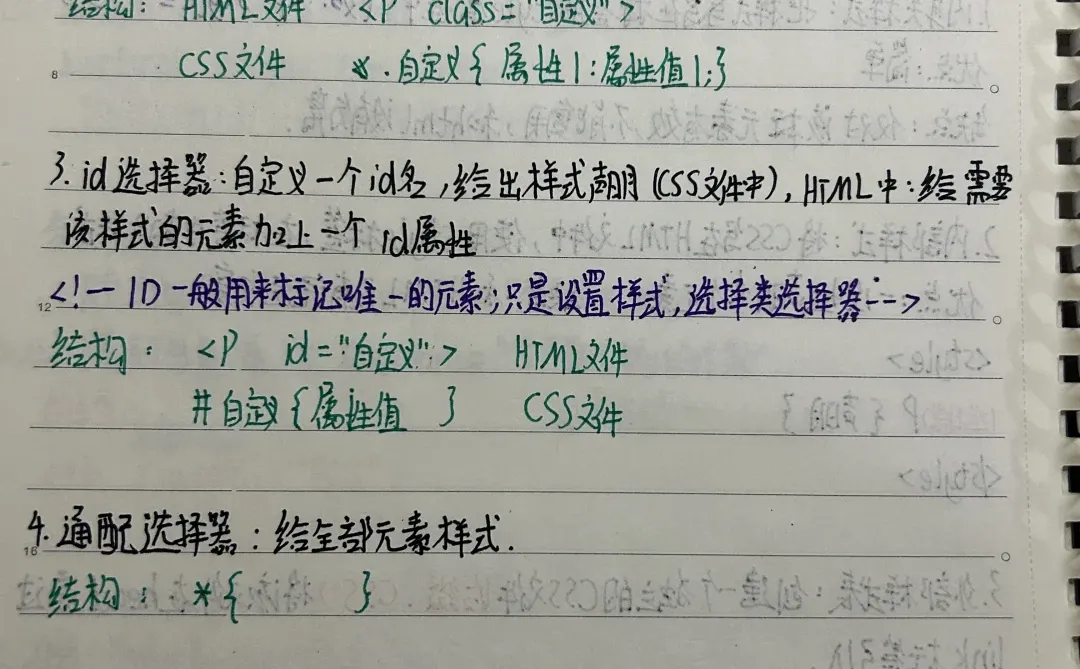 结构: HTML文件 <P class="自定义">
CSS文件 .自定义{属性1:属性值1;}
8
3.id选择器:自定义一个id名,给出样式声明(CSS文件中),HTML中:给需要
该样式的元素加上一个id属性
<!-- ID一般用来标记唯一的元素;只是设置样式,选择类选择器-->
12
结构: <P id="自定义"> HTML文件
#自定义{属性值 } CSS文件
4.通配选择器:给全部元素样式.
16
结构: *{ }